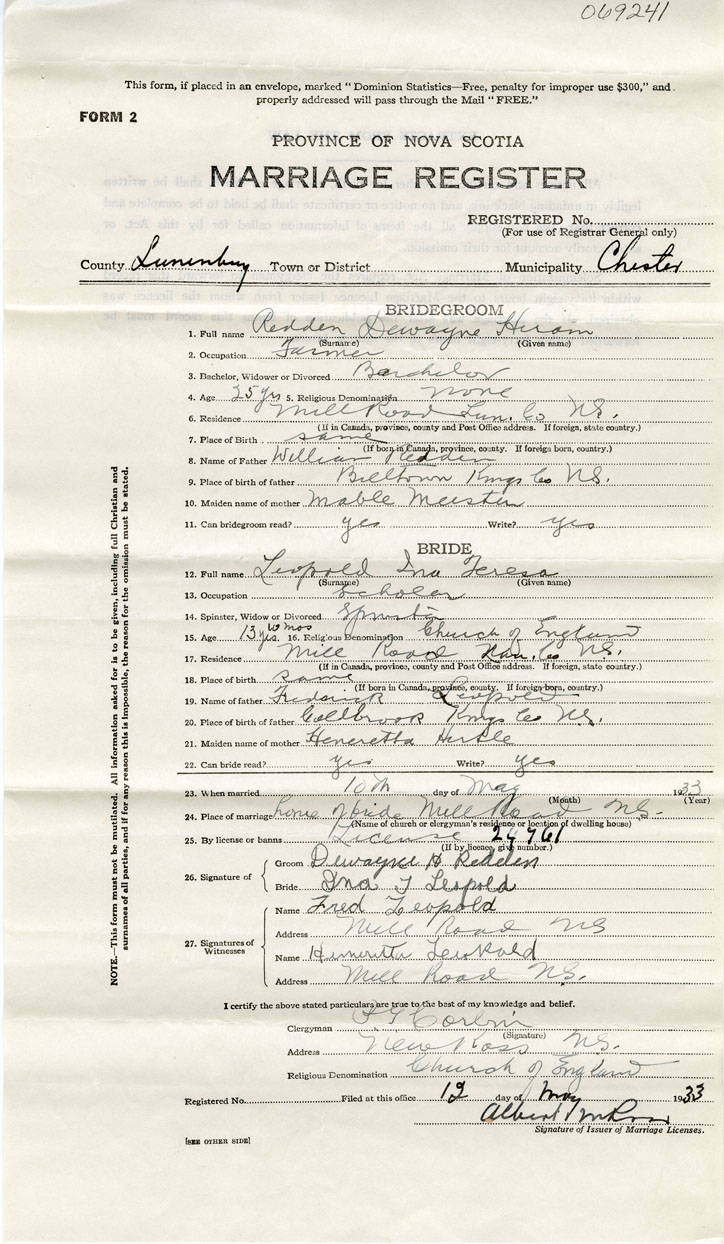 069241
This form, if placed in an envelope, marked "Dominion Statistics—Free, penalty for improper use $300," and
properly addressed will pass through the Mail "FREE."
FORM 2
PROVINCE OF NOVA SCOTIA
MARRIAGE REGISTER
REGISTERED No.
(For use of Registrar General only)
County Lunenburg Town or District Municipality Chester
BRIDEGROOM
1. Full name Redden Dewayne Hiram
(Surname) (Given name)
2. Occupation Farmer
3. Bachelor, Widower or Divorced Bachelor
4. Age 25 yrs 5. Religious Denomination none
6. Residence Mill Road Lun. Co N.S.
(If in Canada, province, county and Post Office address. If foreign, state country.)
7. Place of Birth same
(If born in Canada, province, county. If foreign born, country.)
8. Name of Father William Redden
9. Place of birth of father Billtown Kings Co N.S.
10. Maiden name of mother Mable Meister
11. Can bridegroom read? yes Write? yes
BRIDE
12. Full name Leopold Ina Teresa
(Surname) (Given name)
13. Occupation Scholar
14. Spinster, Widow or Divorced Spinster
15. Age 13 yrs. mos 16. Religious Denomination Church of England
17. Residence Mill Road Co N.S.
(If in Canada, province, county and Post Office address. If foreign, state country.)
18. Place of birth same
(If born in Canada, province, county. If foreign born, country.)
19. Name of father Frederick Leopold
20. Place of birth of father Kings Co N.S.
21. Maiden name of mother Heneretta Hirtle
22. Can bride read? yes Write? yes
23. When married 10th day of May 1933
(Month) (Year)
24. Place of marriage home of bride Mill Road N.S.
(Name of church or clergyman's residence or location of dwelling house)
25. By license or banns License 24761
(If by licence, give number.)
26. Signature of
Groom Dewayne H Redden
Bride Ina T Leopold
27. Signatures of Witnesses
Name Fred Leopold
Address Mill Road NS
Name Leopold
Address Mill Road N.S.
I certify the above stated particulars are true to the best of my knowledge and belief.
Clergyman
(Signature)
Address New Ross N.S.
Religious Denomination Church of England
Registered No. Filed at this office 12 day of May 1933
Albert
Signature of Issuer of Marriage Licenses.
[SEE OTHER SIDE]
NOTE.—This form must not be mutilated. All information asked for is to be given, including full Christian and
surnames of all parties, and if for any reason this is impossible, the reason for the omission must be stated.